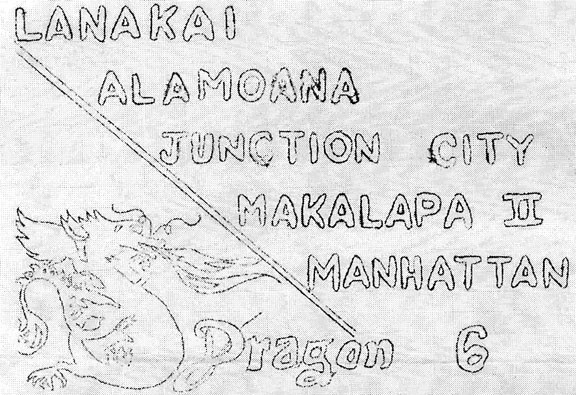 LANAKAI
ALAMOANA
JUNCTION CITY
MAKALAPA II
MANHATTAN
Dragon 6